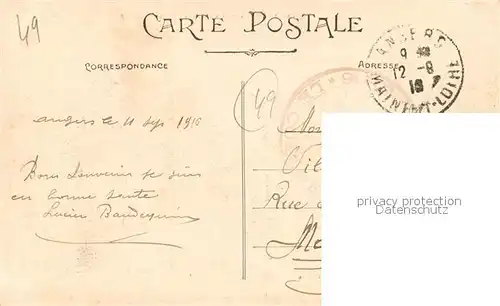 49
CARTE POSTALE
CORRESPONDANCE
ADRESSE
ANGERS
9
12 - 8
MAINE-ET-LOIRE
49
angers le 11 Sep 1916
Bons Souvenirs je suis
en bonne sante
Lucien
Rue
privacy protection
Datenschutz